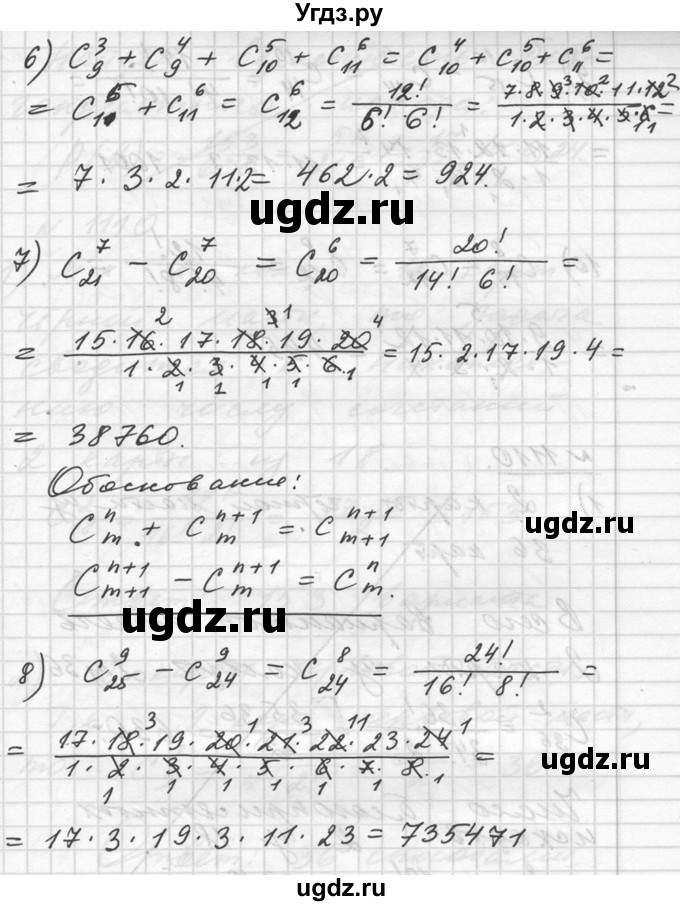 Угдз.ру
6) C₉³ + C₉⁴ + C₁₀⁵ + C₁₁⁶ = C₁₀⁴ + C₁₀⁵ + C₁₁⁶ =
= C₁₁⁵ + C₁₁⁶ = C₁₂⁶ = 12! / (6! 6!) = (7·8·9³·10²·11·12²) / (1·2·3·4·5·6) =
= 7·3·2·11·2 = 462·2 = 924.
ugdz.ru
7) C₂₁⁷ − C₂₀⁷ = C₂₀⁶ = 20! / (14! 6!) =
= (15·16²·17·18·19·20⁴) / (1·2·3·4·5·6) = 15·2·17·19·4 =
= 38760.
Обоснование:
Cₘⁿ + Cₘⁿ⁺¹ = Cₘ₊₁ⁿ⁺¹
ugdz.ru
Cₘ₊₁ⁿ⁺¹ − Cₘⁿ⁺¹ = Cₘⁿ.
ugdz.ru
8) C₂₅⁹ − C₂₄⁹ = C₂₄⁸ = 24! / (16! 8!) =
= (17·18³·19·20¹·21³·22¹¹·23·24¹) / (1·2·3·4·5·6·7·8) =
ugdz.ru
= 17·3·19·3·11·23 = 735471
ugdz.ru